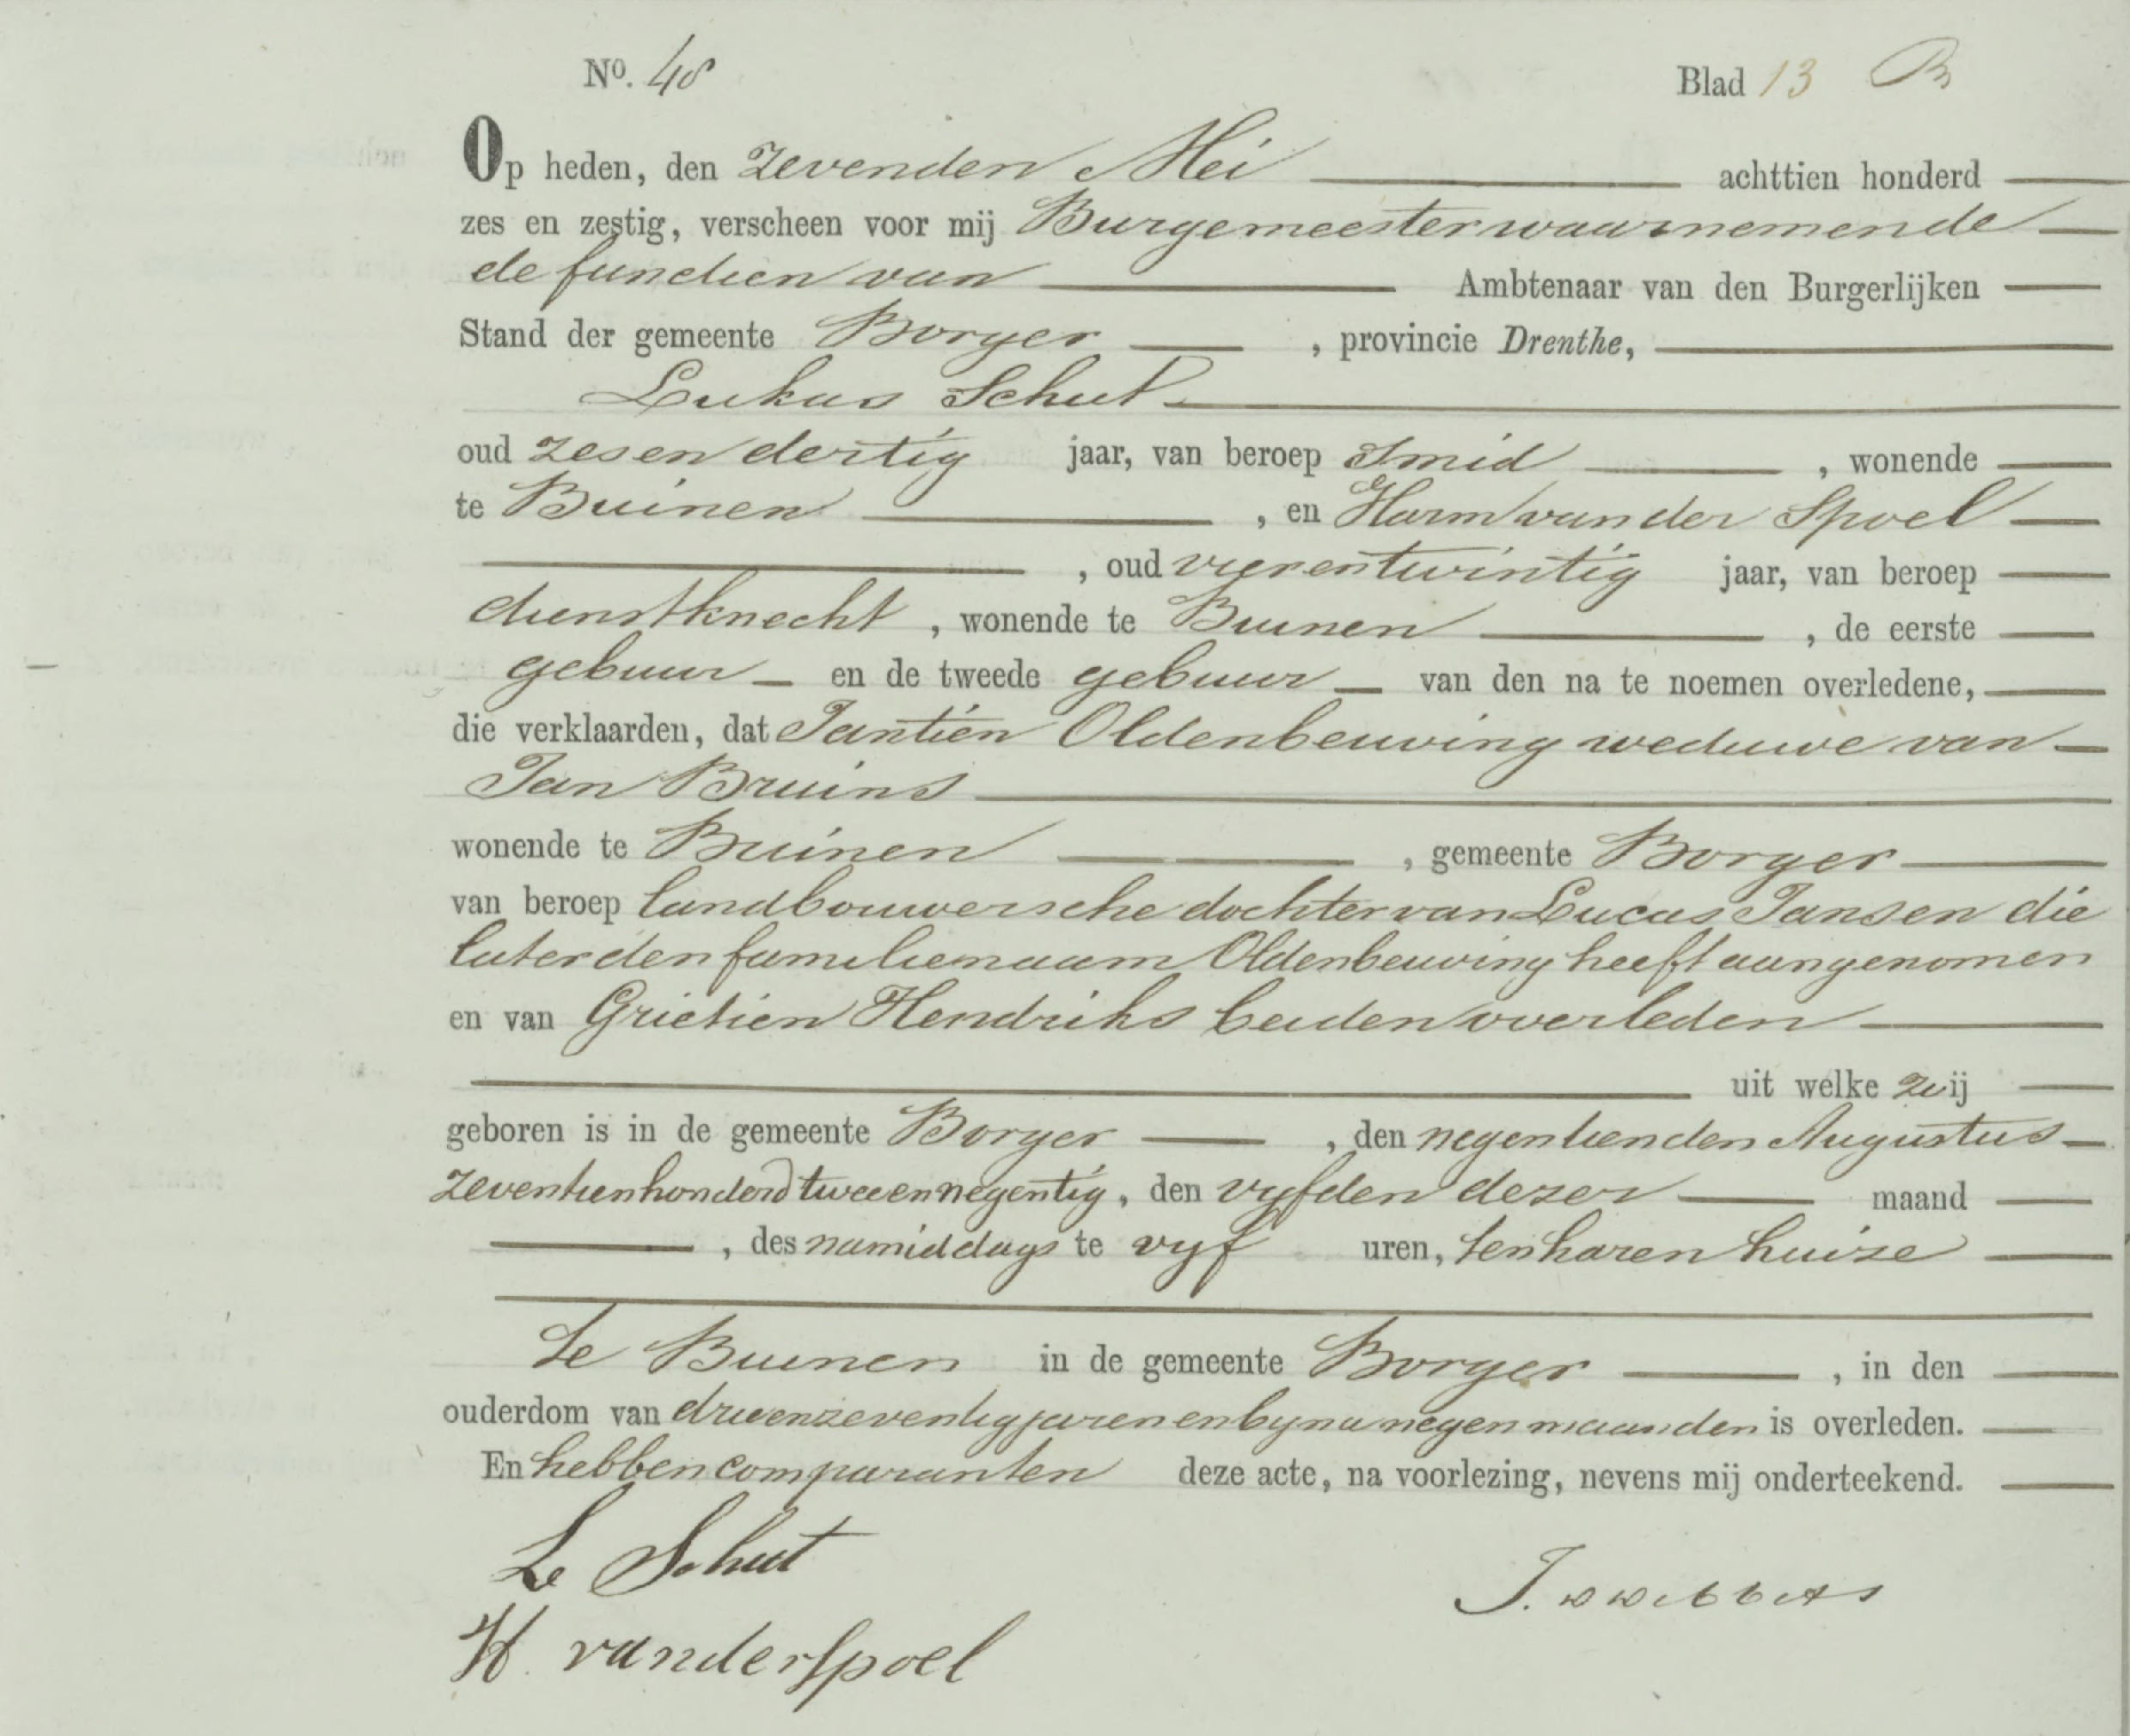 No. 48 Blad 13 B
Op heden, den zevenden Mei achttien honderd
zes en zestig, verscheen voor mij Burgemeester waarnemende
de functien van Ambtenaar van den Burgerlijken
Stand der gemeente Borger, provincie Drenthe,
Lukas Schut
oud zesendertig jaar, van beroep Smid, wonende
te Buinen, en Harm van der Spoel
, oud vierentwintig jaar, van beroep
dienstknecht, wonende te Buinen, de eerste
gebuur en de tweede gebuur van den na te noemen overledene,
die verklaarden, dat Jantien Oldenbeuving weduwe van
Jan Bruins
wonende te Buinen, gemeente Borger
van beroep landbouwersche dochter van Lucas Jansen die
later den familienaam Oldenbeuving heeft aangenomen
en van Grietien Hendriks beiden overleden
uit welke zij
geboren is in de gemeente Borger, den negentienden Augustus
zeventienhonderd tweeennegentig, den vyfden dezer maand
, des namiddags te vyf uren, ten haren huize
te Buinen in de gemeente Borger, in den
ouderdom van drieenzeventig jaren en byna negen maanden is overleden.
En hebben comparanten deze acte, na voorlezing, nevens mij onderteekend.
L Schut
H. vanderspoel